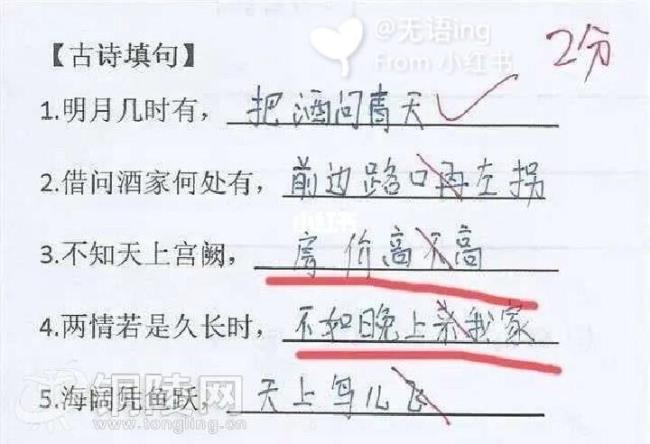 @无语ing
From 小红书
2分
【古诗填句】
1.明月几时有，把酒问青天
2.借问酒家何处有，前边路口再左拐
小红书
3.不知天上宫阙，房价高不高
4.两情若是久长时，不如晚上来我家
5.海阔凭鱼跃，天上鸟儿飞
铜陵网
www.tongling.cn